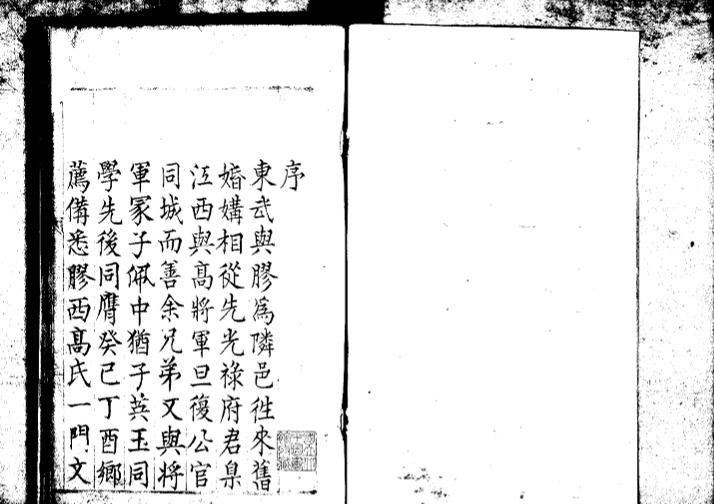 序
東武與膠為隣邑徃來舊
婚媾相從先光祿府君臬
江西與高將軍旦復公官
同城而善余兄弟又與將
軍冢子佩中猶子英玉同
學先後同膺癸己丁酉鄉
薦備悉膠西高氏一門文